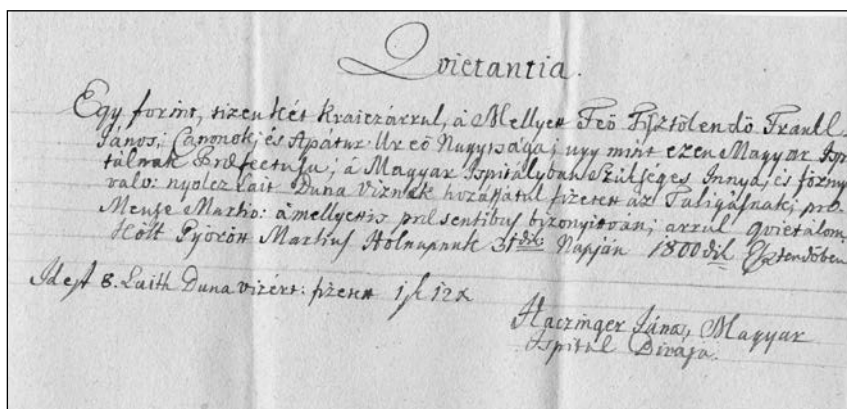 Qvietantia.
Egy forint, tizenkét Kraiczárrul, á Mellyet Feö Tisztölendö Trautl
János; Canonok; és Apátur Ur eö Nagysága; ugy mint ezen Magyar Ispi
tálnak Præfectusa; á Magyar Ispitályban Szükséges Innya, és főzny
való: nyolcz Lait Duna Viznek hozásátul fizetett az Taligásnak; pro
Mense Martio: á mellyettis præsentibus bizonyitván; arrul qvietálom
Költ Győrött Martius Holnapnak 31dik: Napján 1800dik Esztendőben
Idest 8. Laith Duna vizért: fizetett 1 f 12 x
Haczinger János, Magyar
Ispitál Birája.